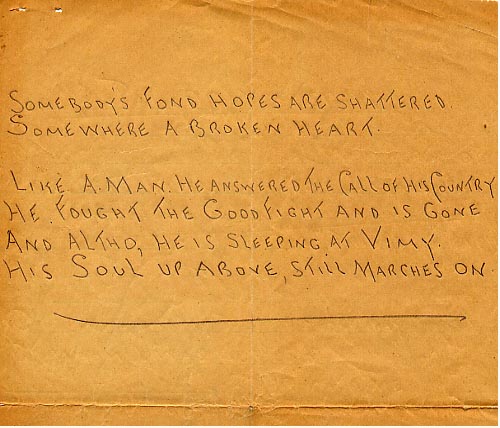 SOMEBODY'S FOND HOPES ARE SHATTERED.
SOMEWHERE A BROKEN HEART.
LIKE A. MAN. HE ANSWERED THE CALL OF HIS COUNTRY
HE FOUGHT THE GOOD FIGHT AND IS GONE
AND ALTHO, HE IS SLEEPING AT VIMY.
HIS SOUL UP ABOVE, STILL MARCHES ON.